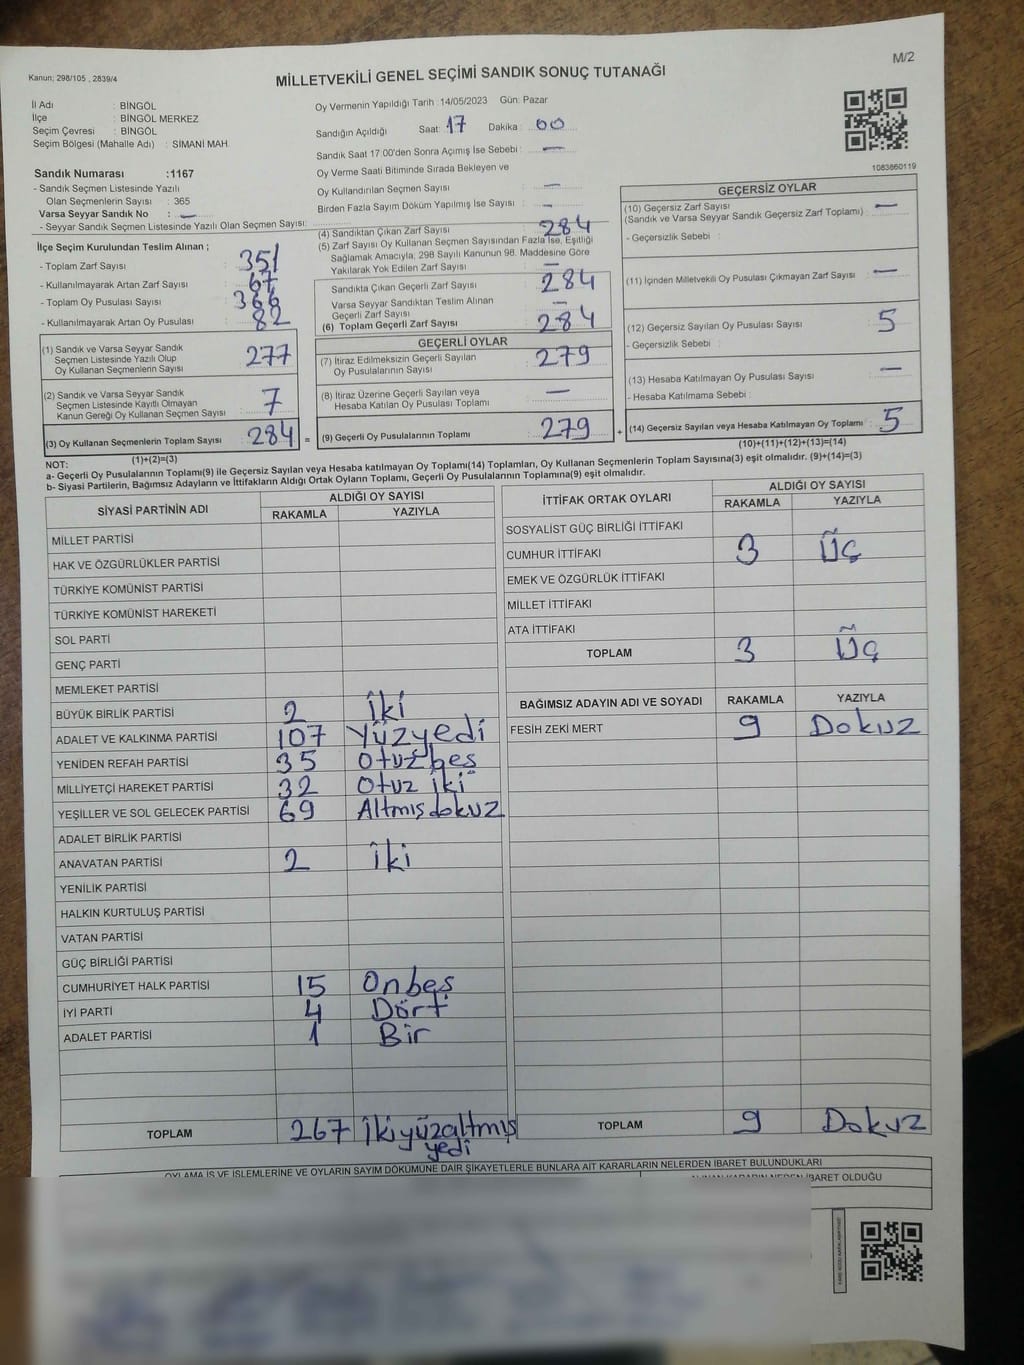 M/2
Kanun; 298/105 , 2839/4
MİLLETVEKİLİ GENEL SEÇİMİ SANDIK SONUÇ TUTANAĞI
İl Adı : BİNGÖL
İlçe : BİNGÖL MERKEZ
Seçim Çevresi : BİNGÖL
Seçim Bölgesi (Mahalle Adı) : SİMANİ MAH.
Sandık Numarası :1167
- Sandık Seçmen Listesinde Yazılı
Olan Seçmenlerin Sayısı : 365
Varsa Seyyar Sandık No : —
- Seyyar Sandık Seçmen Listesinde Yazılı Olan Seçmen Sayısı:
İlçe Seçim Kurulundan Teslim Alınan ;
- Toplam Zarf Sayısı : 351
- Kullanılmayarak Artan Zarf Sayısı : 67
- Toplam Oy Pusulası Sayısı : 366
- Kullanılmayarak Artan Oy Pusulası : 82
(1) Sandık ve Varsa Seyyar Sandık
Seçmen Listesinde Yazılı Olup
Oy Kullanan Seçmenlerin Sayısı : 277
(2) Sandık ve Varsa Seyyar Sandık
Seçmen Listesinde Kayıtlı Olmayan
Kanun Gereği Oy Kullanan Seçmen Sayısı : 7
(3) Oy Kullanan Seçmenlerin Toplam Sayısı : 284 =
(1)+(2)=(3)
Oy Vermenin Yapıldığı Tarih : 14/05/2023 Gün: Pazar
Sandığın Açıldığı Saat: 17 Dakika : 00
Sandık Saat 17:00'den Sonra Açımış İse Sebebi : —
Oy Verme Saati Bitiminde Sırada Bekleyen ve
Oy Kullandırılan Seçmen Sayısı : —
Birden Fazla Sayım Döküm Yapılmış İse Sayısı : —
(4) Sandıktan Çıkan Zarf Sayısı : 284
(5) Zarf Sayısı Oy Kullanan Seçmen Sayısından Fazla İse, Eşitliği
Sağlamak Amacıyla, 298 Sayılı Kanunun 98. Maddesine Göre
Yakılarak Yok Edilen Zarf Sayısı : —
Sandıkta Çıkan Geçerli Zarf Sayısı : 284
Varsa Seyyar Sandıktan Teslim Alınan
Geçerli Zarf Sayısı : —
(6) Toplam Geçerli Zarf Sayısı : 284
GEÇERLİ OYLAR
(7) İtiraz Edilmeksizin Geçerli Sayılan
Oy Pusulalarının Sayısı : 279
(8) İtiraz Üzerine Geçerli Sayılan veya
Hesaba Katılan Oy Pusulası Toplamı : —
(9) Geçerli Oy Pusulalarının Toplamı : 279 +
1083860119
GEÇERSİZ OYLAR
(10) Geçersiz Zarf Sayısı : —
(Sandık ve Varsa Seyyar Sandık Geçersiz Zarf Toplamı)
- Geçersizlik Sebebi :
(11) İçinden Milletvekili Oy Pusulası Çıkmayan Zarf Sayısı : —
(12) Geçersiz Sayılan Oy Pusulası Sayısı : 5
- Geçersizlik Sebebi :
(13) Hesaba Katılmayan Oy Pusulası Sayısı : —
- Hesaba Katılmama Sebebi :
(14) Geçersiz Sayılan veya Hesaba Katılmayan Oy Toplamı : 5
(10)+(11)+(12)+(13)=(14)
NOT:
a- Geçerli Oy Pusulalarının Toplamı(9) ile Geçersiz Sayılan veya Hesaba katılmayan Oy Toplamı(14) Toplamları, Oy Kullanan Seçmenlerin Toplam Sayısına(3) eşit olmalıdır. (9)+(14)=(3)
b- Siyasi Partilerin, Bağımsız Adayların ve İttifakların Aldığı Ortak Oyların Toplamı, Geçerli Oy Pusulalarının Toplamına(9) eşit olmalıdır.
SİYASİ PARTİNİN ADI ALDIĞI OY SAYISI
RAKAMLA YAZIYLA
MİLLET PARTİSİ
HAK VE ÖZGÜRLÜKLER PARTİSİ
TÜRKİYE KOMÜNİST PARTİSİ
TÜRKİYE KOMÜNİST HAREKETİ
SOL PARTİ
GENÇ PARTİ
MEMLEKET PARTİSİ
BÜYÜK BİRLİK PARTİSİ 2 İki
ADALET VE KALKINMA PARTİSİ 107 Yüzyedi
YENİDEN REFAH PARTİSİ 35 Otuzbeş
MİLLİYETÇİ HAREKET PARTİSİ 32 Otuz iki
YEŞİLLER VE SOL GELECEK PARTİSİ 69 Altmışdokuz
ADALET BİRLİK PARTİSİ
ANAVATAN PARTİSİ 2 İki
YENİLİK PARTİSİ
HALKIN KURTULUŞ PARTİSİ
VATAN PARTİSİ
GÜÇ BİRLİĞİ PARTİSİ
CUMHURİYET HALK PARTİSİ 15 Onbeş
İYİ PARTİ 4 Dört
ADALET PARTİSİ 1 Bir
TOPLAM 267 İkiyüzaltmış
yedi
İTTİFAK ORTAK OYLARI ALDIĞI OY SAYISI
RAKAMLA YAZIYLA
SOSYALİST GÜÇ BİRLİĞİ İTTİFAKI
CUMHUR İTTİFAKI 3 Üç
EMEK VE ÖZGÜRLÜK İTTİFAKI
MİLLET İTTİFAKI
ATA İTTİFAKI
TOPLAM 3 Üç
BAĞIMSIZ ADAYIN ADI VE SOYADI RAKAMLA YAZIYLA
FESİH ZEKİ MERT 9 Dokuz
TOPLAM 9 Dokuz
OYLAMA İŞ VE İŞLEMLERİNE VE OYLARIN SAYIM DÖKÜMÜNE DAİR ŞİKAYETLERLE BUNLARA AİT KARARLARIN NELERDEN İBARET BULUNDUKLARI
İBARET OLDUĞU